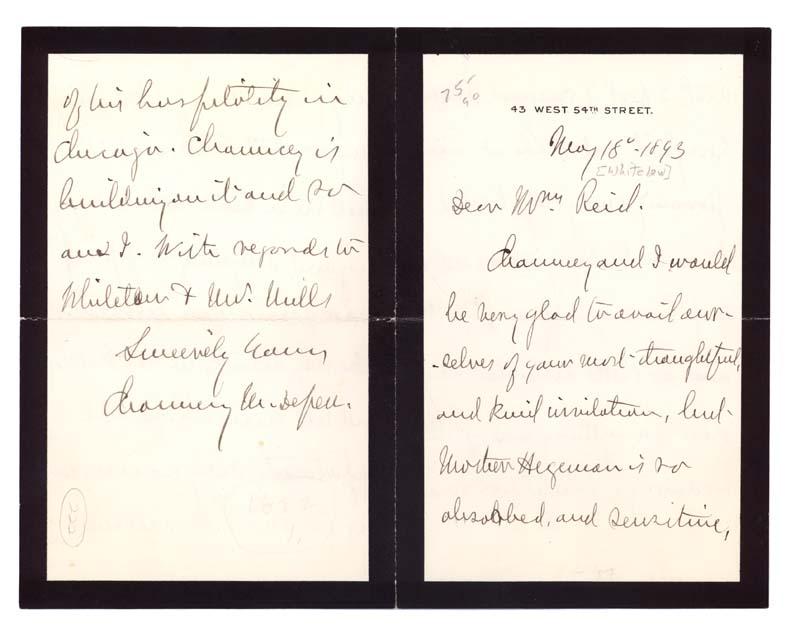 43 WEST 54TH STREET.
May 18th-1893
[Whitelaw]
Dear Mrs Reid.
Chauncey and I would
be very glad to avail our-
-selves of your most thoughtful,
and kind invitation, but-
Mother Hegeman is so
absorbed, and sensitive,
of his hospitality in
Chicago. Chauncey is
building on it and so
am I. With regards to
Whitelaw & Mr. Mills
Sincerely Yours
Chauncey M. Depew.